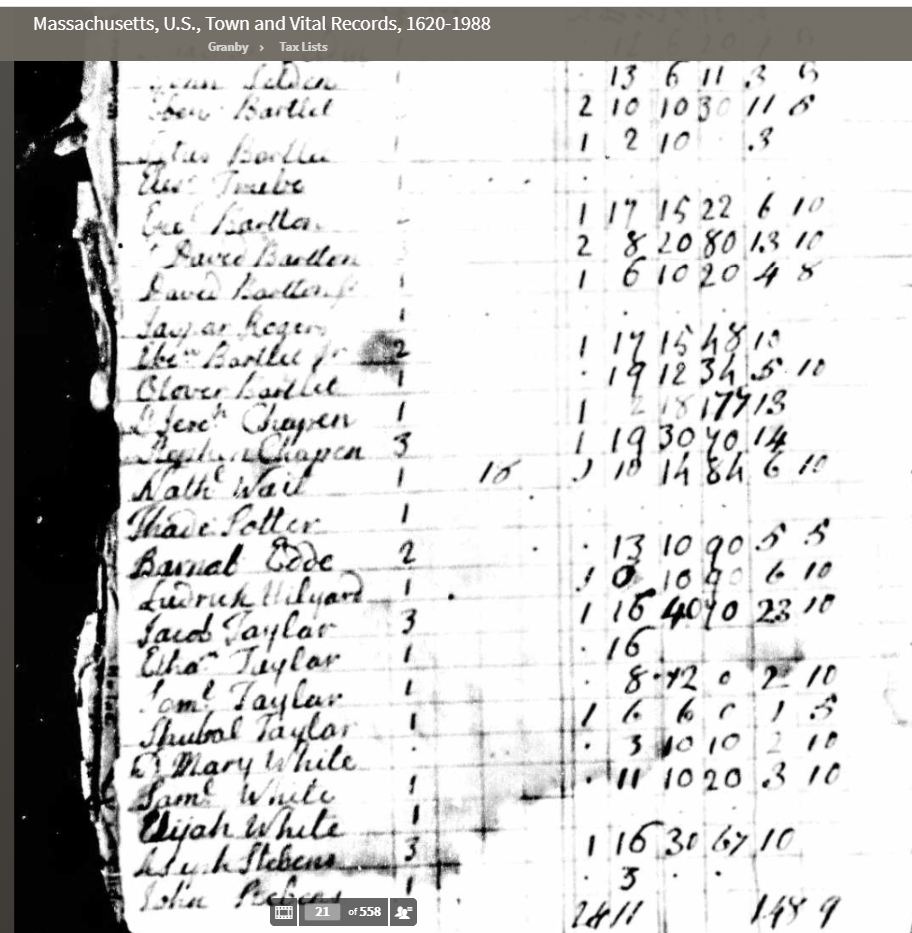 Massachusetts, U.S., Town and Vital Records, 1620-1988
Granby › Tax Lists
Selden 1 13 6 11 3 5
Eben Bartlet 1 2 10 10 30 11 5
Bartlet 1 1 2 10 3
1
Bartlet 1 17 15 22 6 10
David Barlton 2 8 20 80 13 10
David Barlton 1 6 10 20 4 8
Jaspar Rogers 1
Eben Bartlet Jr 2 1 17 15 48 10
Glover Bartlet 1 19 12 34 5 10
Chapen 1 1 2 18 177 13
Stephen Chapen 3 1 19 30 70 14
Nath Wait 1 16 1 10 14 84 6 10
Thade Potter 1
Barnab Edde 2 13 10 90 5 5
Ludrick Hilyard 1 1 0 10 90 6 10
Jacob Taylar 3 1 16 40 70 23 10
Taylar 1 16
Saml Taylar 1 8 12 0 2 10
Shubal Taylar 1 1 6 6 0 1 5
D Mary White 3 10 10 2 10
Saml White 1 11 10 20 3 10
Elijah White 1
Stebens 3 1 16 30 67 10
John Stebens 1 3
24 11 148 9
21 of 558